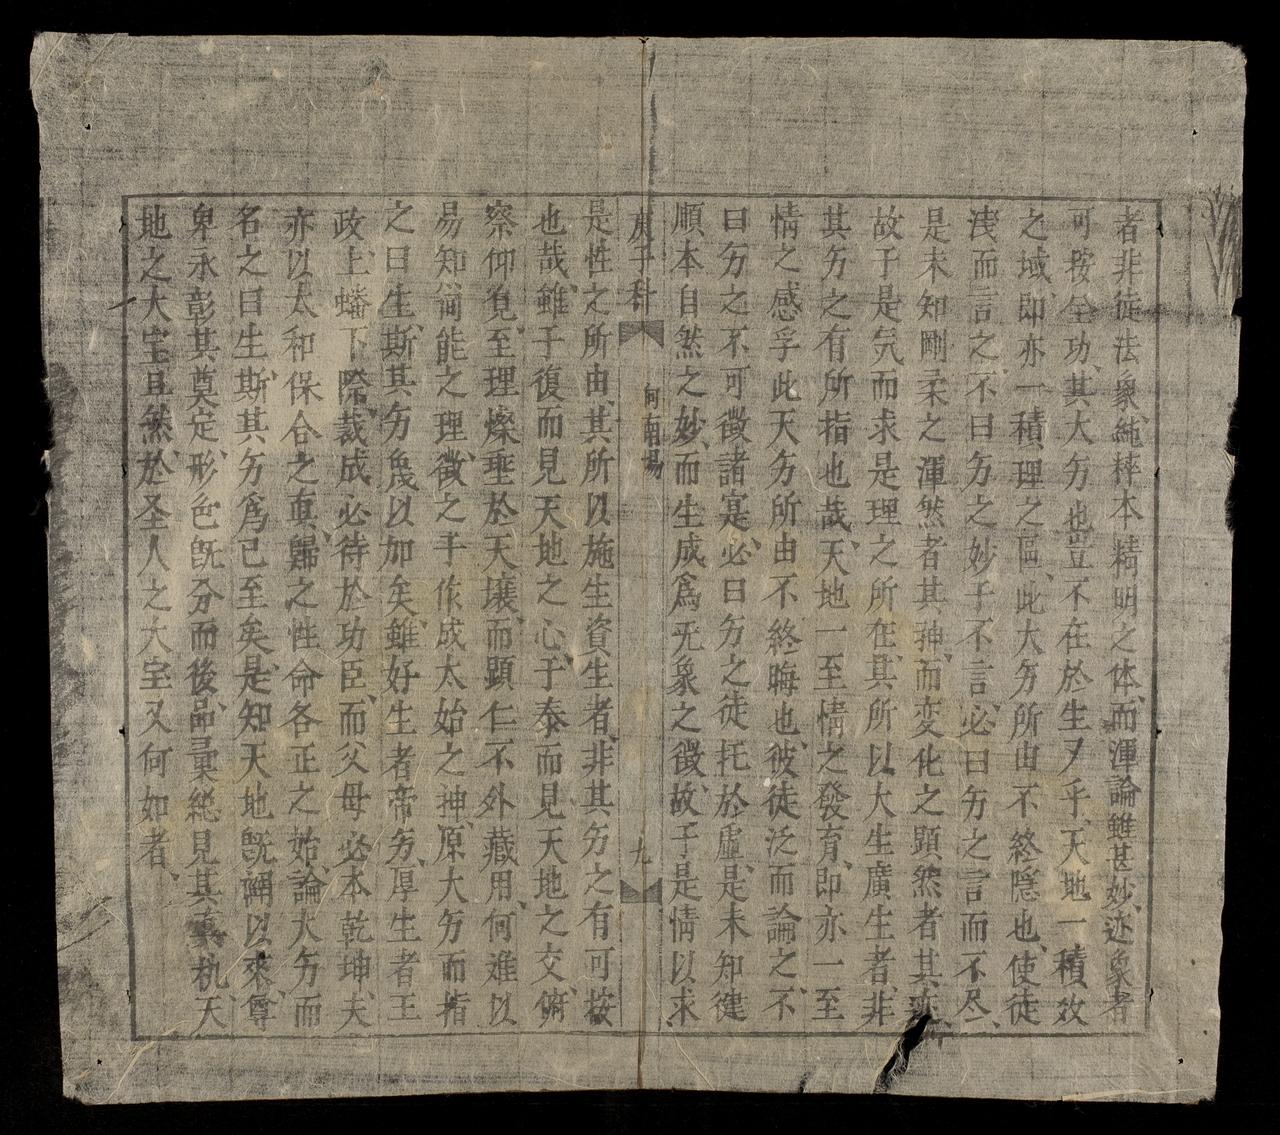 者非徒法象、純粹本精明之体、而渾論雖甚妙、迹象者
可按全功、其大𫝀也豈不在於生乎、天地一積效
之域、即亦一積理之區、此大𫝀所由不終隱也、使徒
浅而言之、不曰𫝀之妙于不言、必曰𫝀之言而不尽、
是未知剛柔之渾然者其神、而变化之顕然者其
故于是気而求是理之所在、其所以大生廣生者、非
其𫝀之有所指也哉、天地一至情之發育、即亦一至
情之感孚此天𫝀所由不終晦也、彼徒泛而論之、不
曰𫝀之不可徵諸寔、必曰𫝀之徒托於虛、是未知健
順本自然之妙、而生成爲旡象之徵、故于是情以求
庚子科 河南場 九
是性之所由、其所以施生資生者、非其𫝀之有可按
也哉、雖于復而見天地之心、于泰而見天地之交、俯
察仰覓、至理燦垂於天壤、而顕仁不外藏用、何難以
易知簡能之理、徵之于作成太始之神、原大𫝀而指
之曰生、斯其𫝀蔑以加矣、雖好生者帝𫝀、厚生者王
政、上蟠下際、裁成必待於功臣、而父母必本乾坤、夫
亦以太和保合之真、歸之性命各正之始、論大𫝀而
名之曰生、斯其𫝀爲已至矣、是知天地旣闢以來、尊
卑永彰其奠定、形色旣分而後、品彙総見其真机、天
地之大宝且然、於圣人之大宝又何如者、